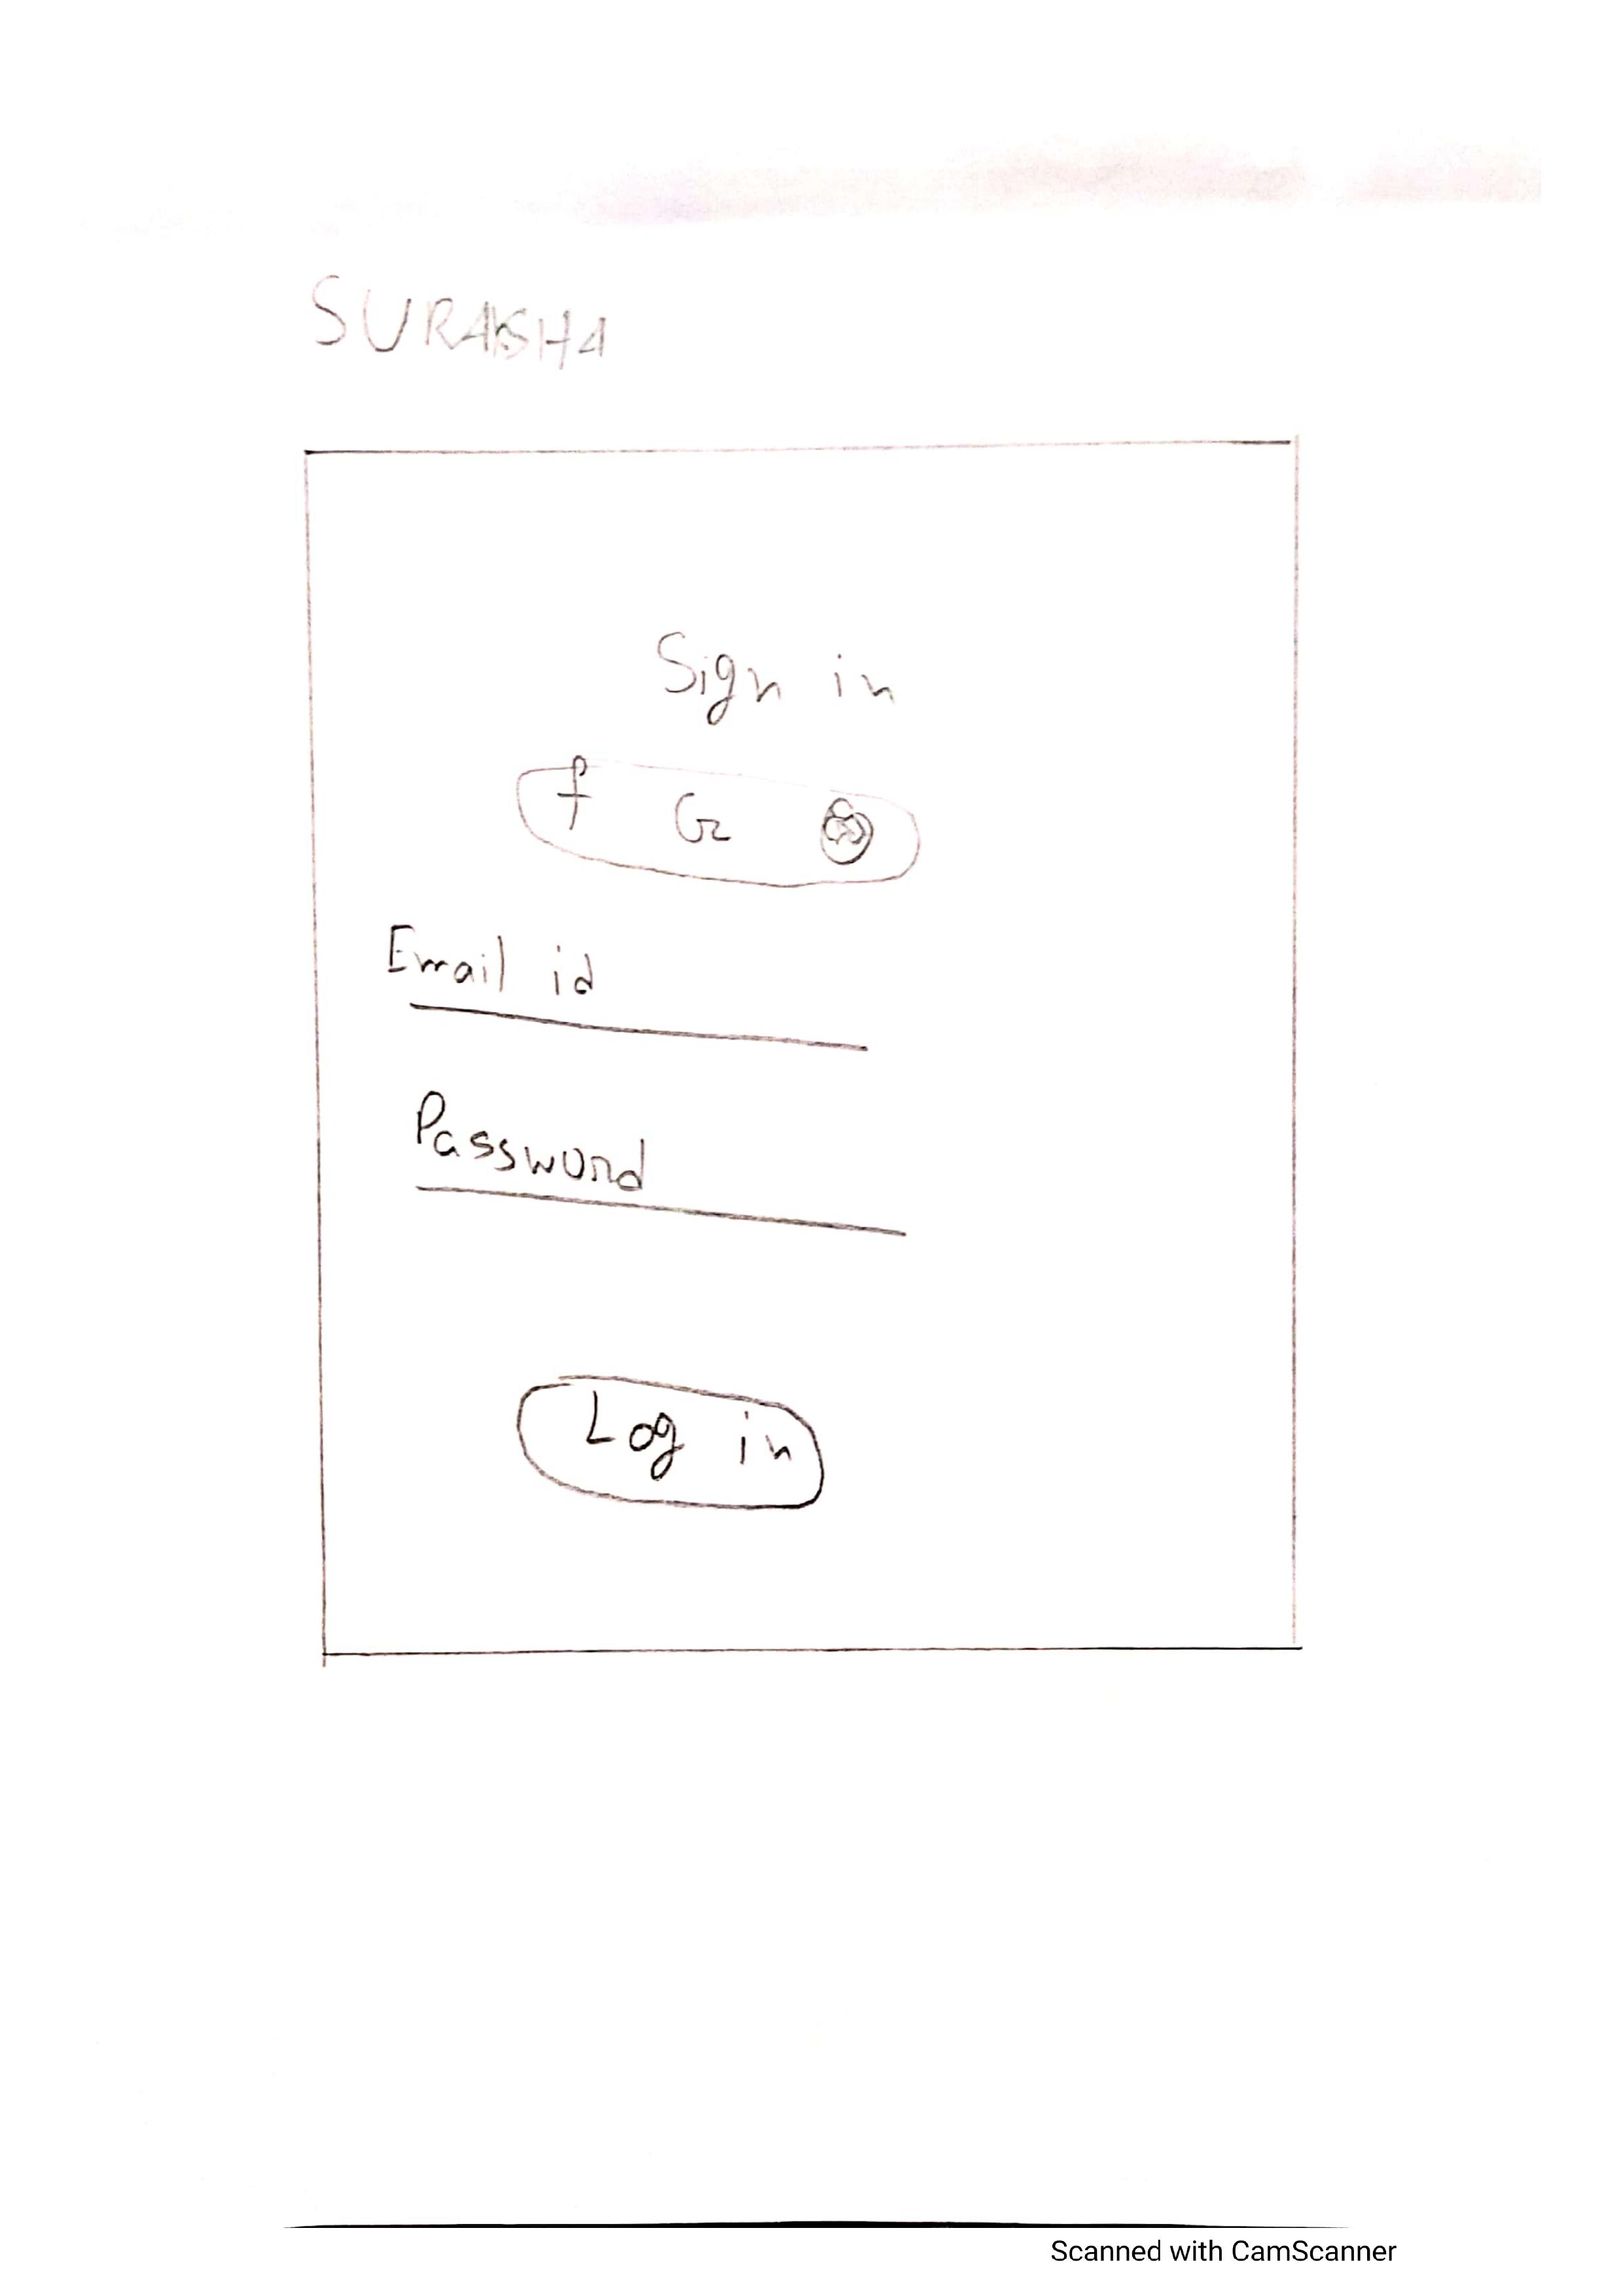 SURAKSHA
Sign in
f G
Email id
Password
Log in
Scanned with CamScanner